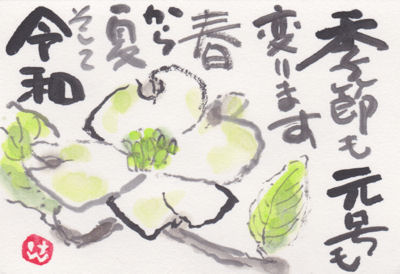 季節も元号も
変います
春
から
夏
そして
令和